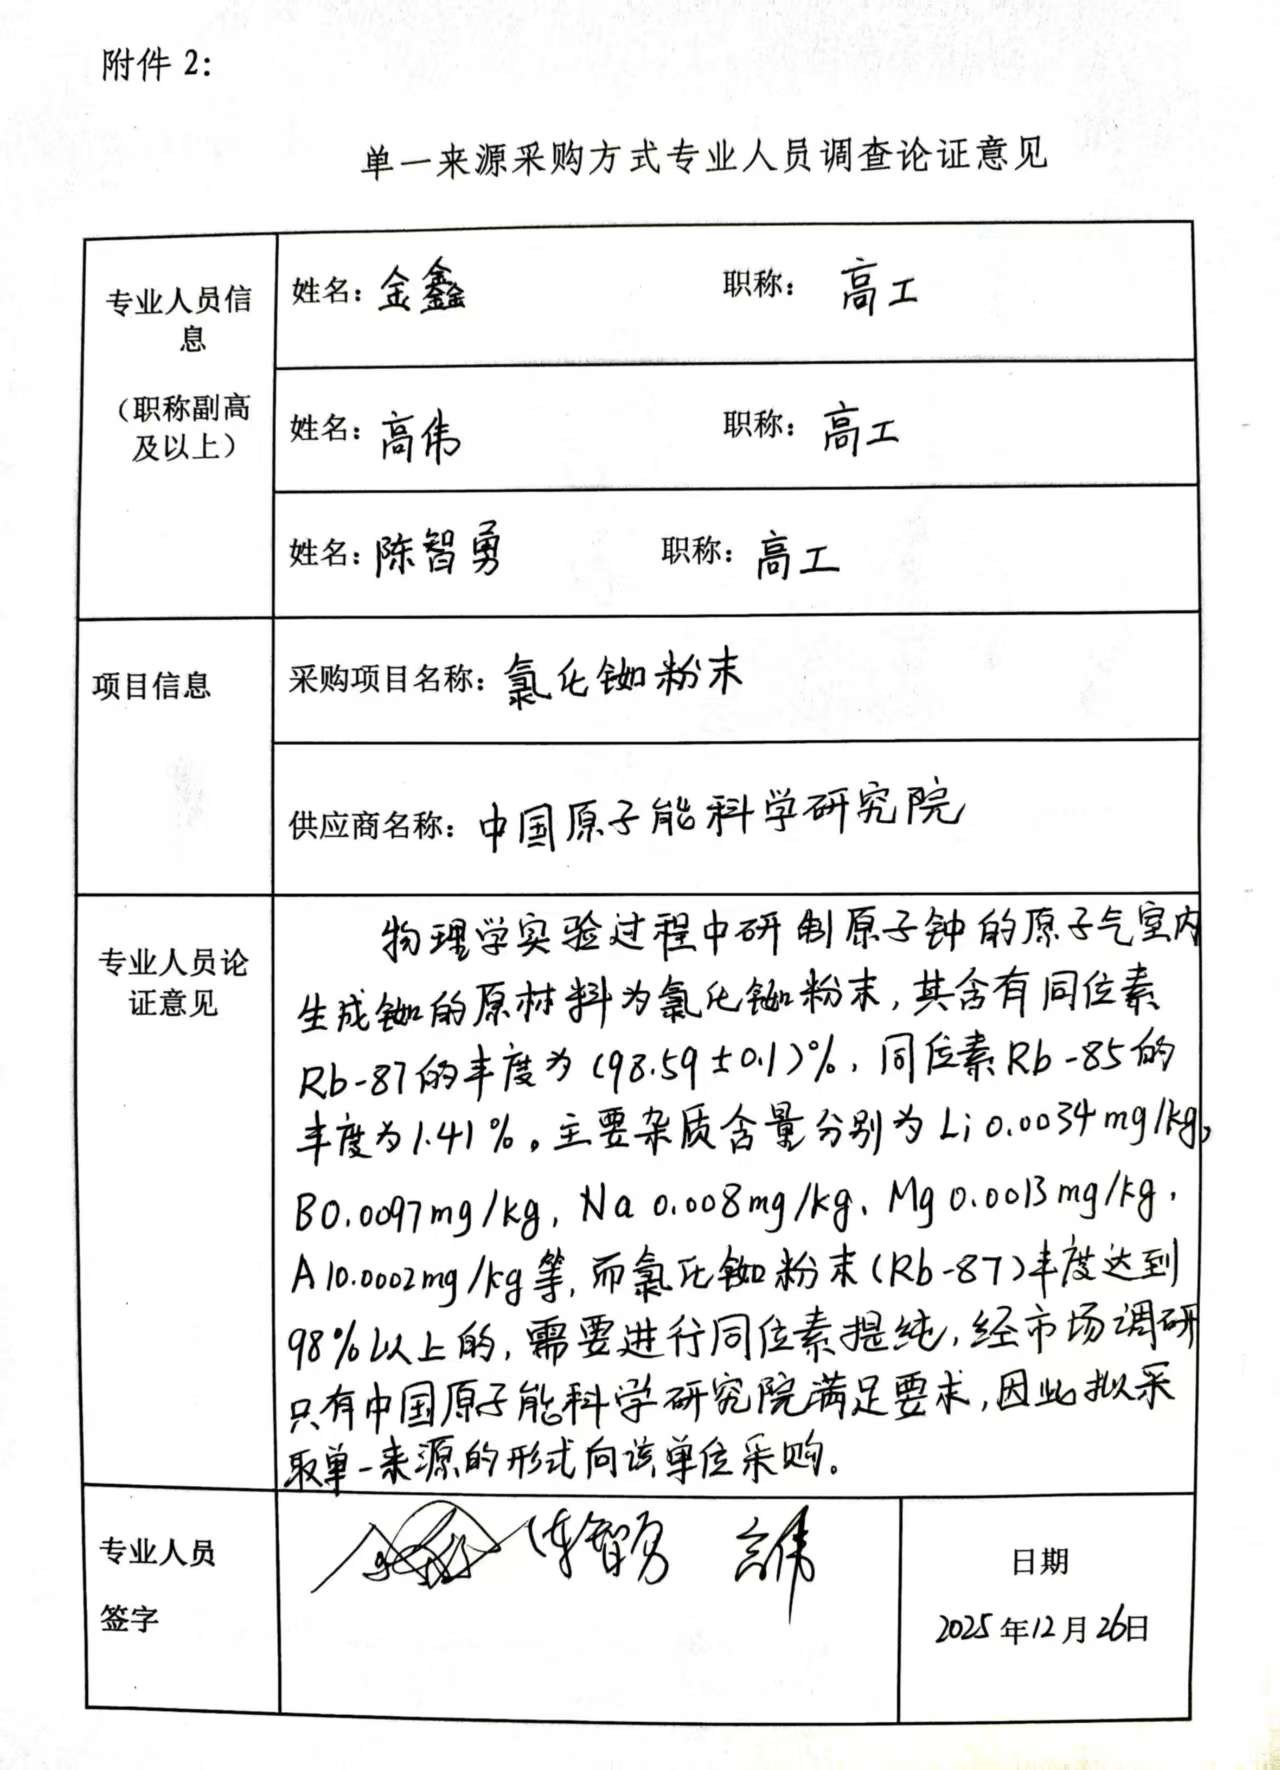 附件 2：
单一来源采购方式专业人员调查论证意见
专业人员信
息
（职称副高
及以上）
姓名：金鑫 职称：高工
姓名：高伟 职称：高工
姓名：陈智勇 职称：高工
项目信息
采购项目名称：氯化铷粉末
供应商名称：中国原子能科学研究院
专业人员论
证意见
物理学实验过程中研制原子钟的原子气室内
生成铷的原材料为氯化铷粉末，其含有同位素
Rb-87的丰度为(98.59±0.1)%，同位素Rb-85的
丰度为1.41%。主要杂质含量分别为Li 0.0034mg/kg，
B0.0097mg/kg，Na 0.008mg/kg、Mg 0.0013mg/kg，
Al0.0002mg/kg等，而氯化铷粉末(Rb-87)丰度达到
98%以上的，需要进行同位素提纯，经市场调研
只有中国原子能科学研究院满足要求，因此拟采
取单一来源的形式向该单位采购。
专业人员
签字
陈智勇 高伟
日期
2025年12月26日